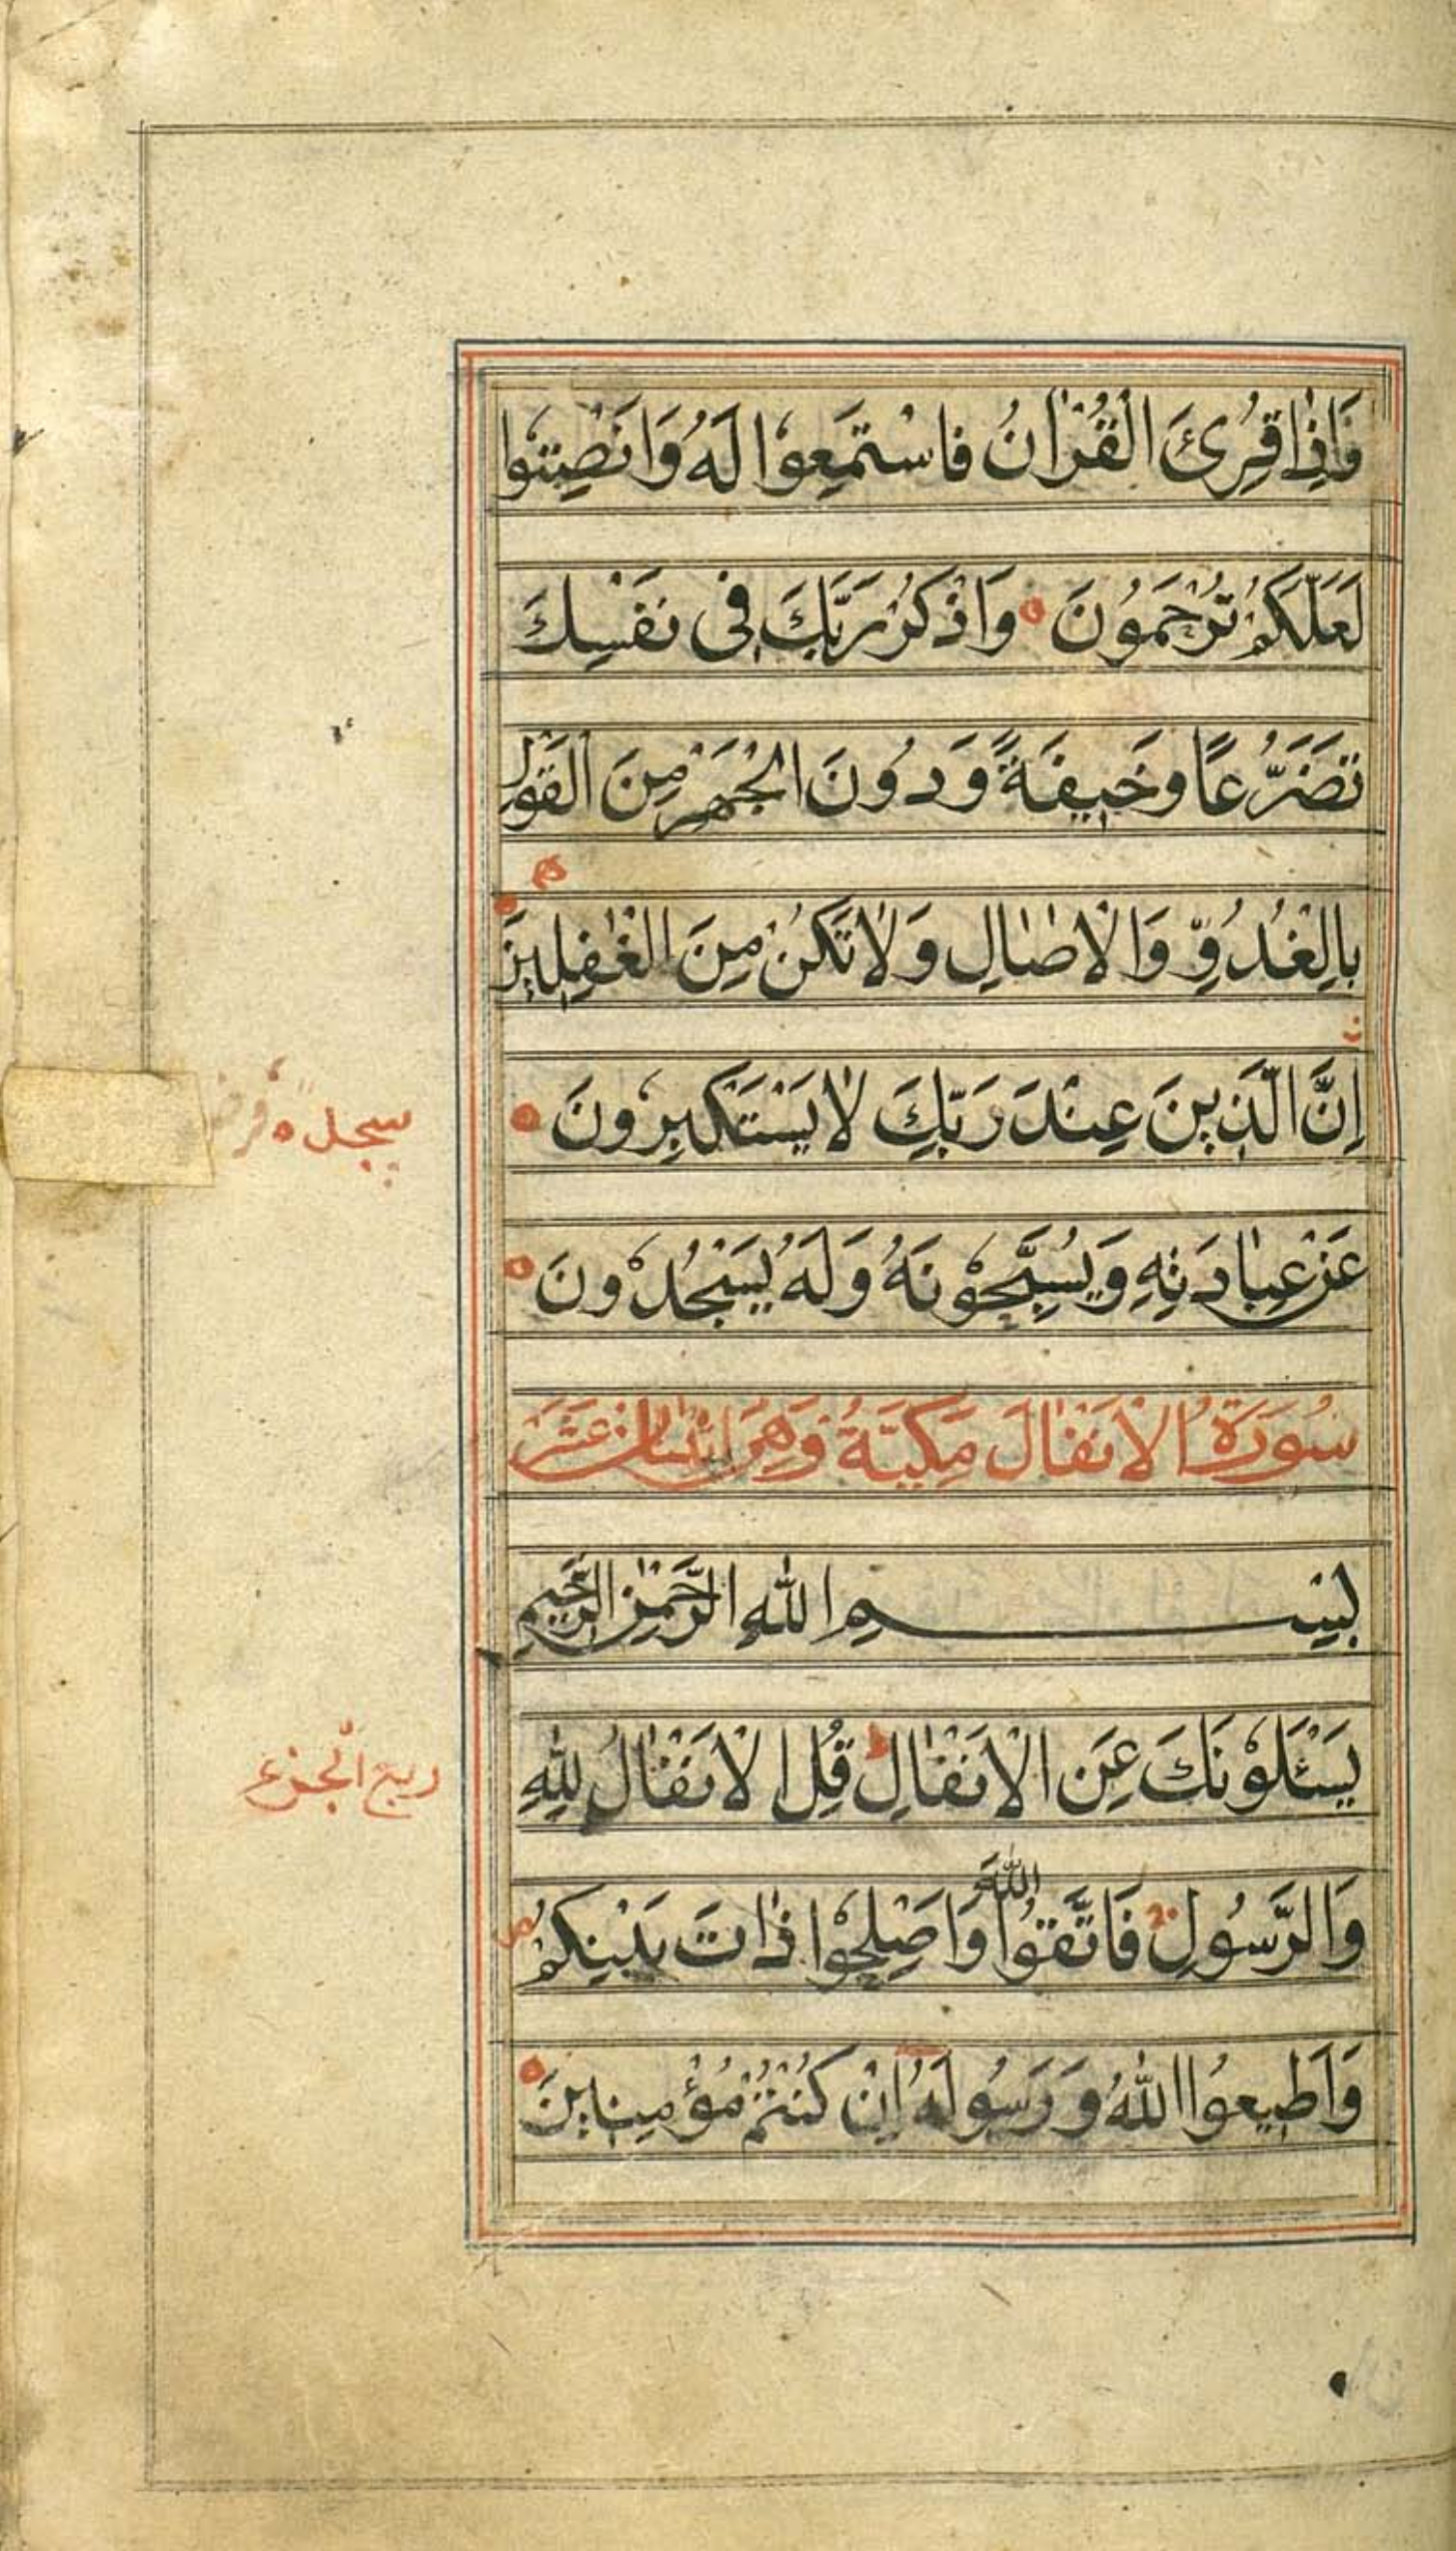 وَاِذَا قُرِئَ الْقُرْاٰنُ فَاسْتَمِعُوْا لَهُ وَاَنْصِتُوا
لَعَلَّكُمْ تُرْحَمُونَ وَاذْكُرْ رَبَّكَ فِى نَفْسِكَ
تَضَرُّعًا وَخِيفَةً وَدُونَ الْجَهْرِ مِنَ الْقَوْلِ
بِالْغُدُوِّ وَالْاٰصَالِ وَلَا تَكُنْ مِنَ الْغٰفِلِينَ
اِنَّ الَّذِينَ عِنْدَ رَبِّكَ لَا يَسْتَكْبِرُونَ
عَنْ عِبَادَتِهِ وَيُسَبِّحُوْنَهُ وَلَهُ يَسْجُدُوْنَ
سجده
سُورَةُ الْاَنْفَال مَكِيَّةٌ وَهِىَ
بِسْمِ اللّٰهِ الرَّحْمٰنِ الرَّحِيمِ
يَسْئَلُوْنَكَ عَنِ الْاَنْفَالِ قُلِ الْاَنْفَالُ لِلّٰهِ
ربع الجزء
وَالرَّسُولِ فَاتَّقُوا اللّٰهَ وَاَصْلِحُوْا ذَاتَ بَيْنِكُمْ
وَاَطِيعُوا اللّٰهَ وَرَسُولَهُ اِنْ كُنْتُمْ مُؤْمِنِينَ